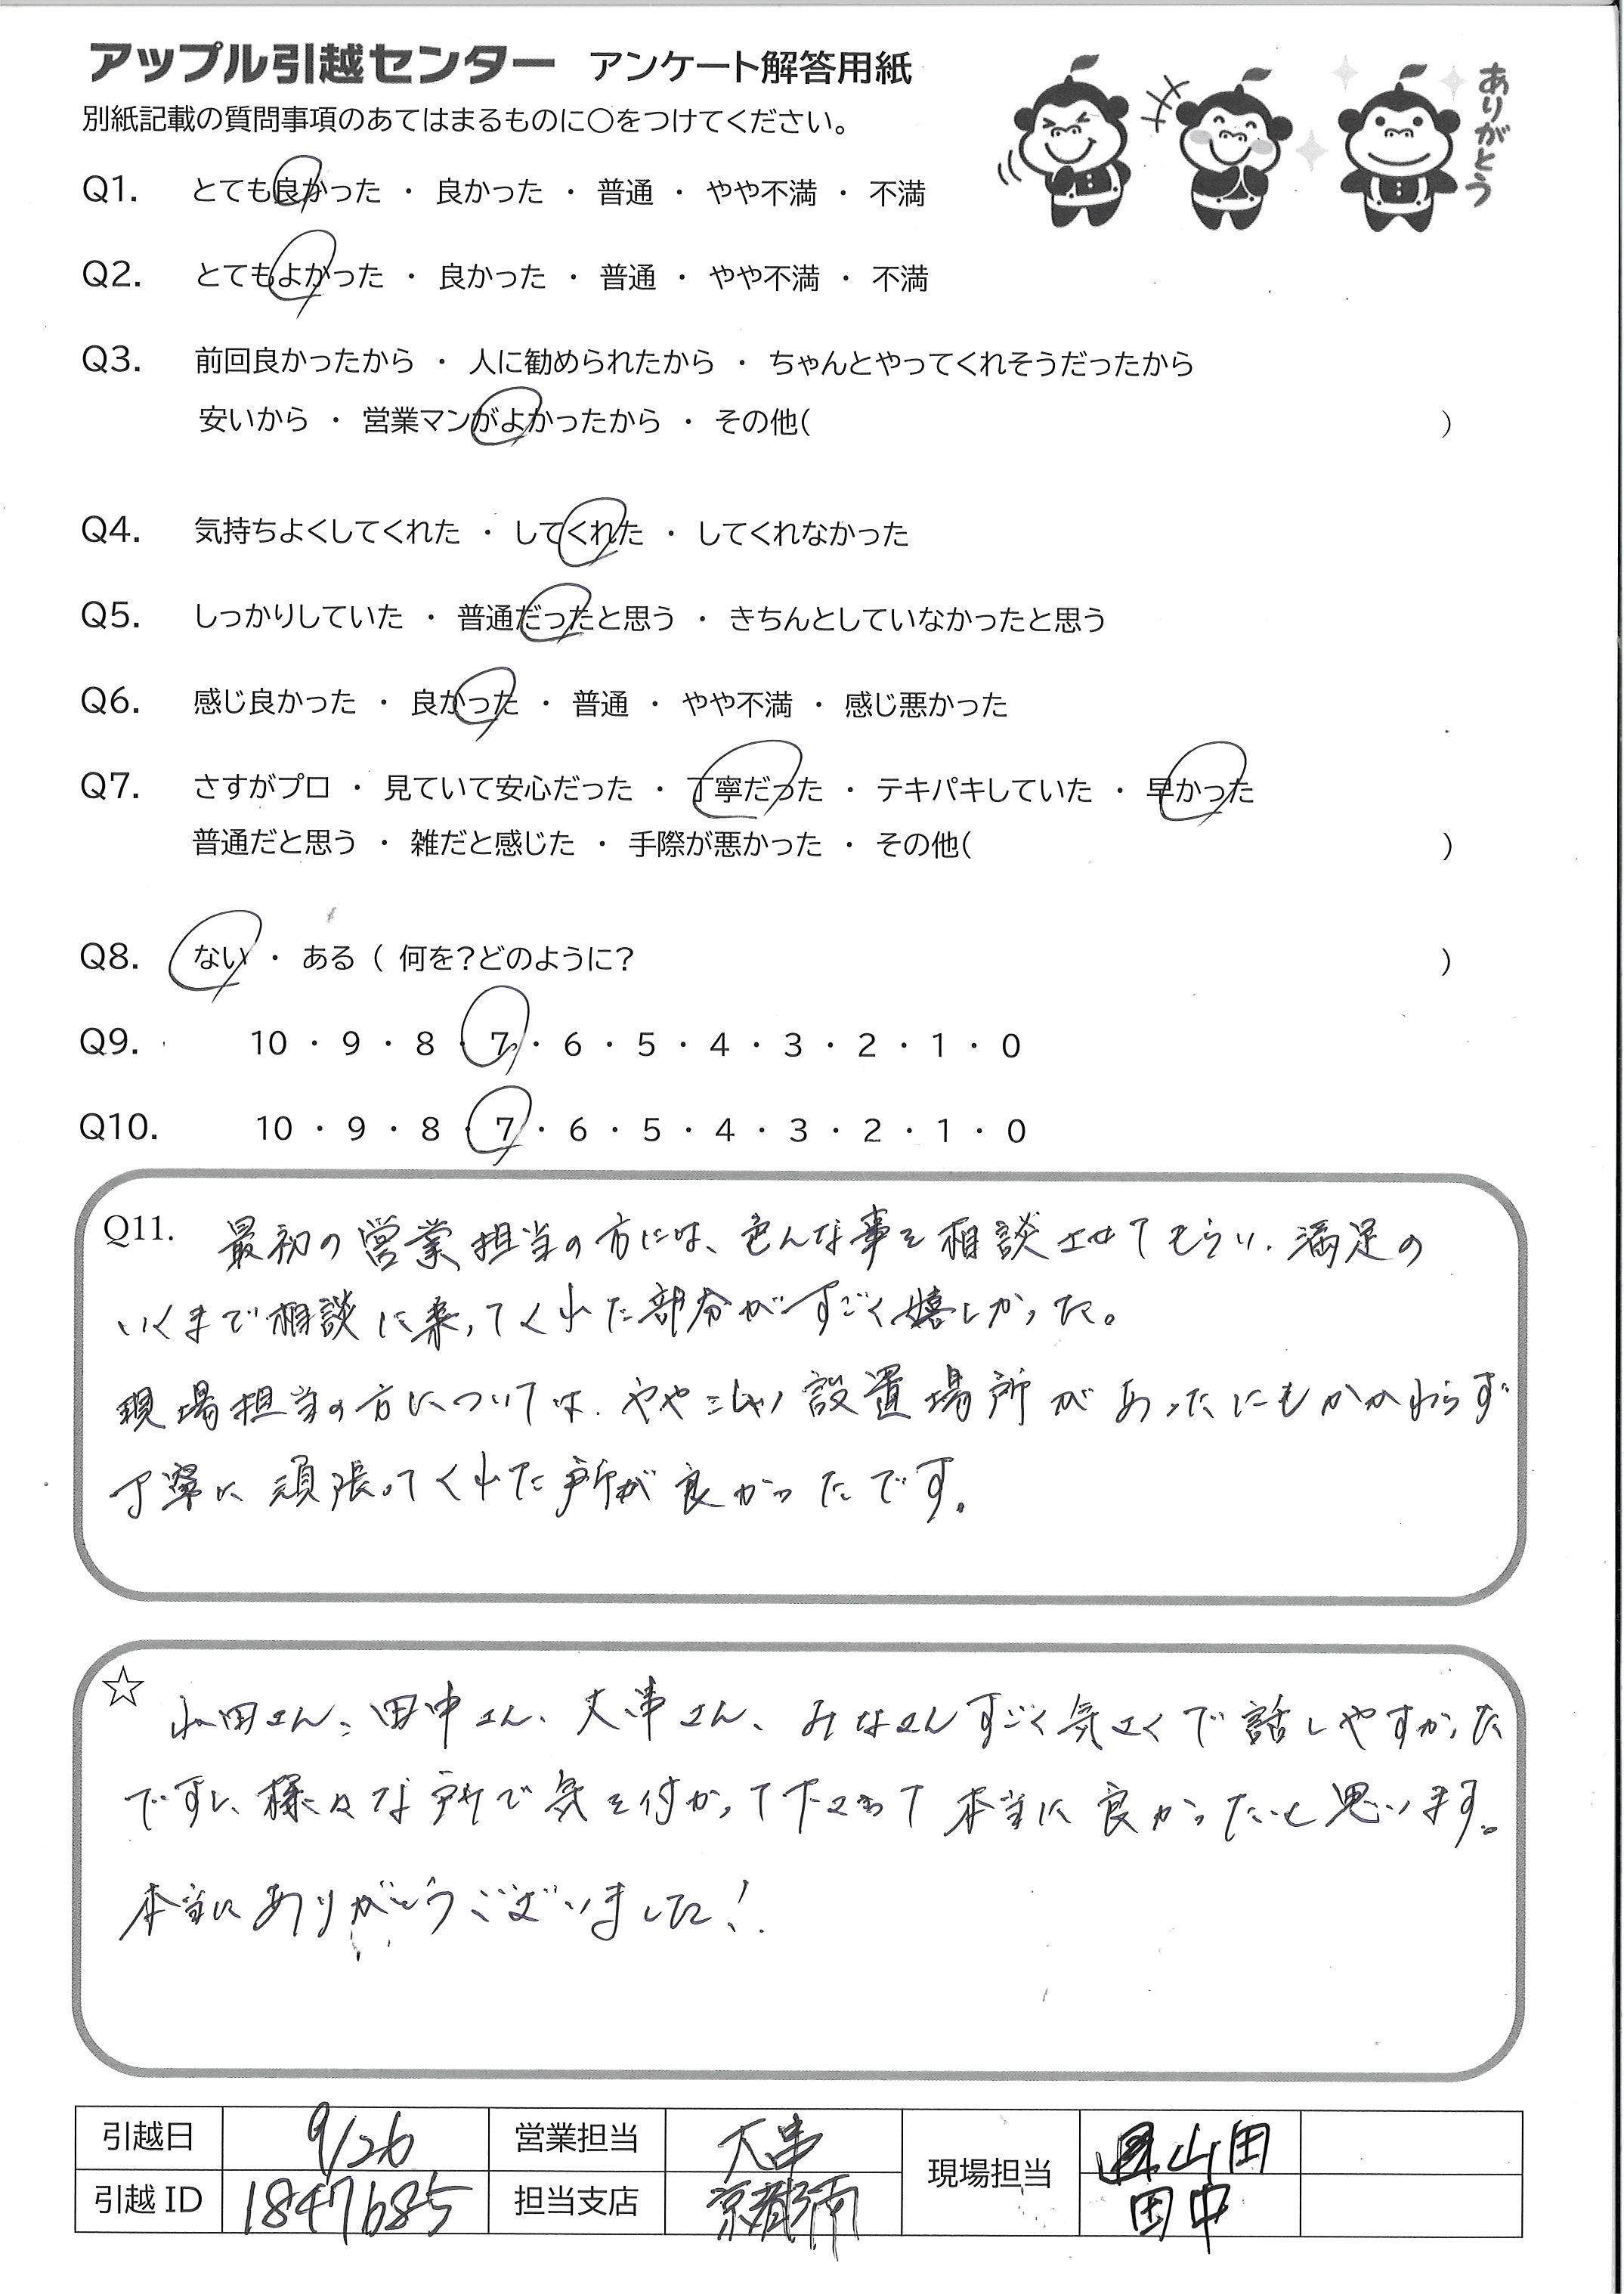 アップル引越センター アンケート解答用紙
ありがとう
別紙記載の質問事項のあてはまるものに○をつけてください。
Q1. とても良かった ・ 良かった ・ 普通 ・ やや不満 ・ 不満
Q2. とてもよかった ・ 良かった ・ 普通 ・ やや不満 ・ 不満
Q3. 前回良かったから ・ 人に勧められたから ・ ちゃんとやってくれそうだったから
安いから ・ 営業マンがよかったから ・ その他( )
Q4. 気持ちよくしてくれた ・ してくれた ・ してくれなかった
Q5. しっかりしていた ・ 普通だったと思う ・ きちんとしていなかったと思う
Q6. 感じ良かった ・ 良かった ・ 普通 ・ やや不満 ・ 感じ悪かった
Q7. さすがプロ ・ 見ていて安心だった ・ 丁寧だった ・ テキパキしていた ・ 早かった
普通だと思う ・ 雑だと感じた ・ 手際が悪かった ・ その他( )
Q8. ない ・ ある ( 何を?どのように? )
Q9. 10 ・ 9 ・ 8 ・ 7 ・ 6 ・ 5 ・ 4 ・ 3 ・ 2 ・ 1 ・ 0
Q10. 10 ・ 9 ・ 8 ・ 7 ・ 6 ・ 5 ・ 4 ・ 3 ・ 2 ・ 1 ・ 0
Q11. 最初の営業担当の方には、色んな事を相談させてもらい、満足の
いくまで相談に来てくれた部分がすごく嬉しかった。
現場担当の方については、ややこしい設置場所があったにもかかわらず
丁寧に頑張ってくれた所が良かったです。
☆ 山田さん、田中さん、大串さん、みなさんすごく気さくで話しやすかった
ですし、様々な所で気を付かって下さって本当に良かったと思います。
本当にありがとうございました!
引越日 9/26 営業担当 大串 現場担当 山田
引越ID 1847685 担当支店 京都南 田中